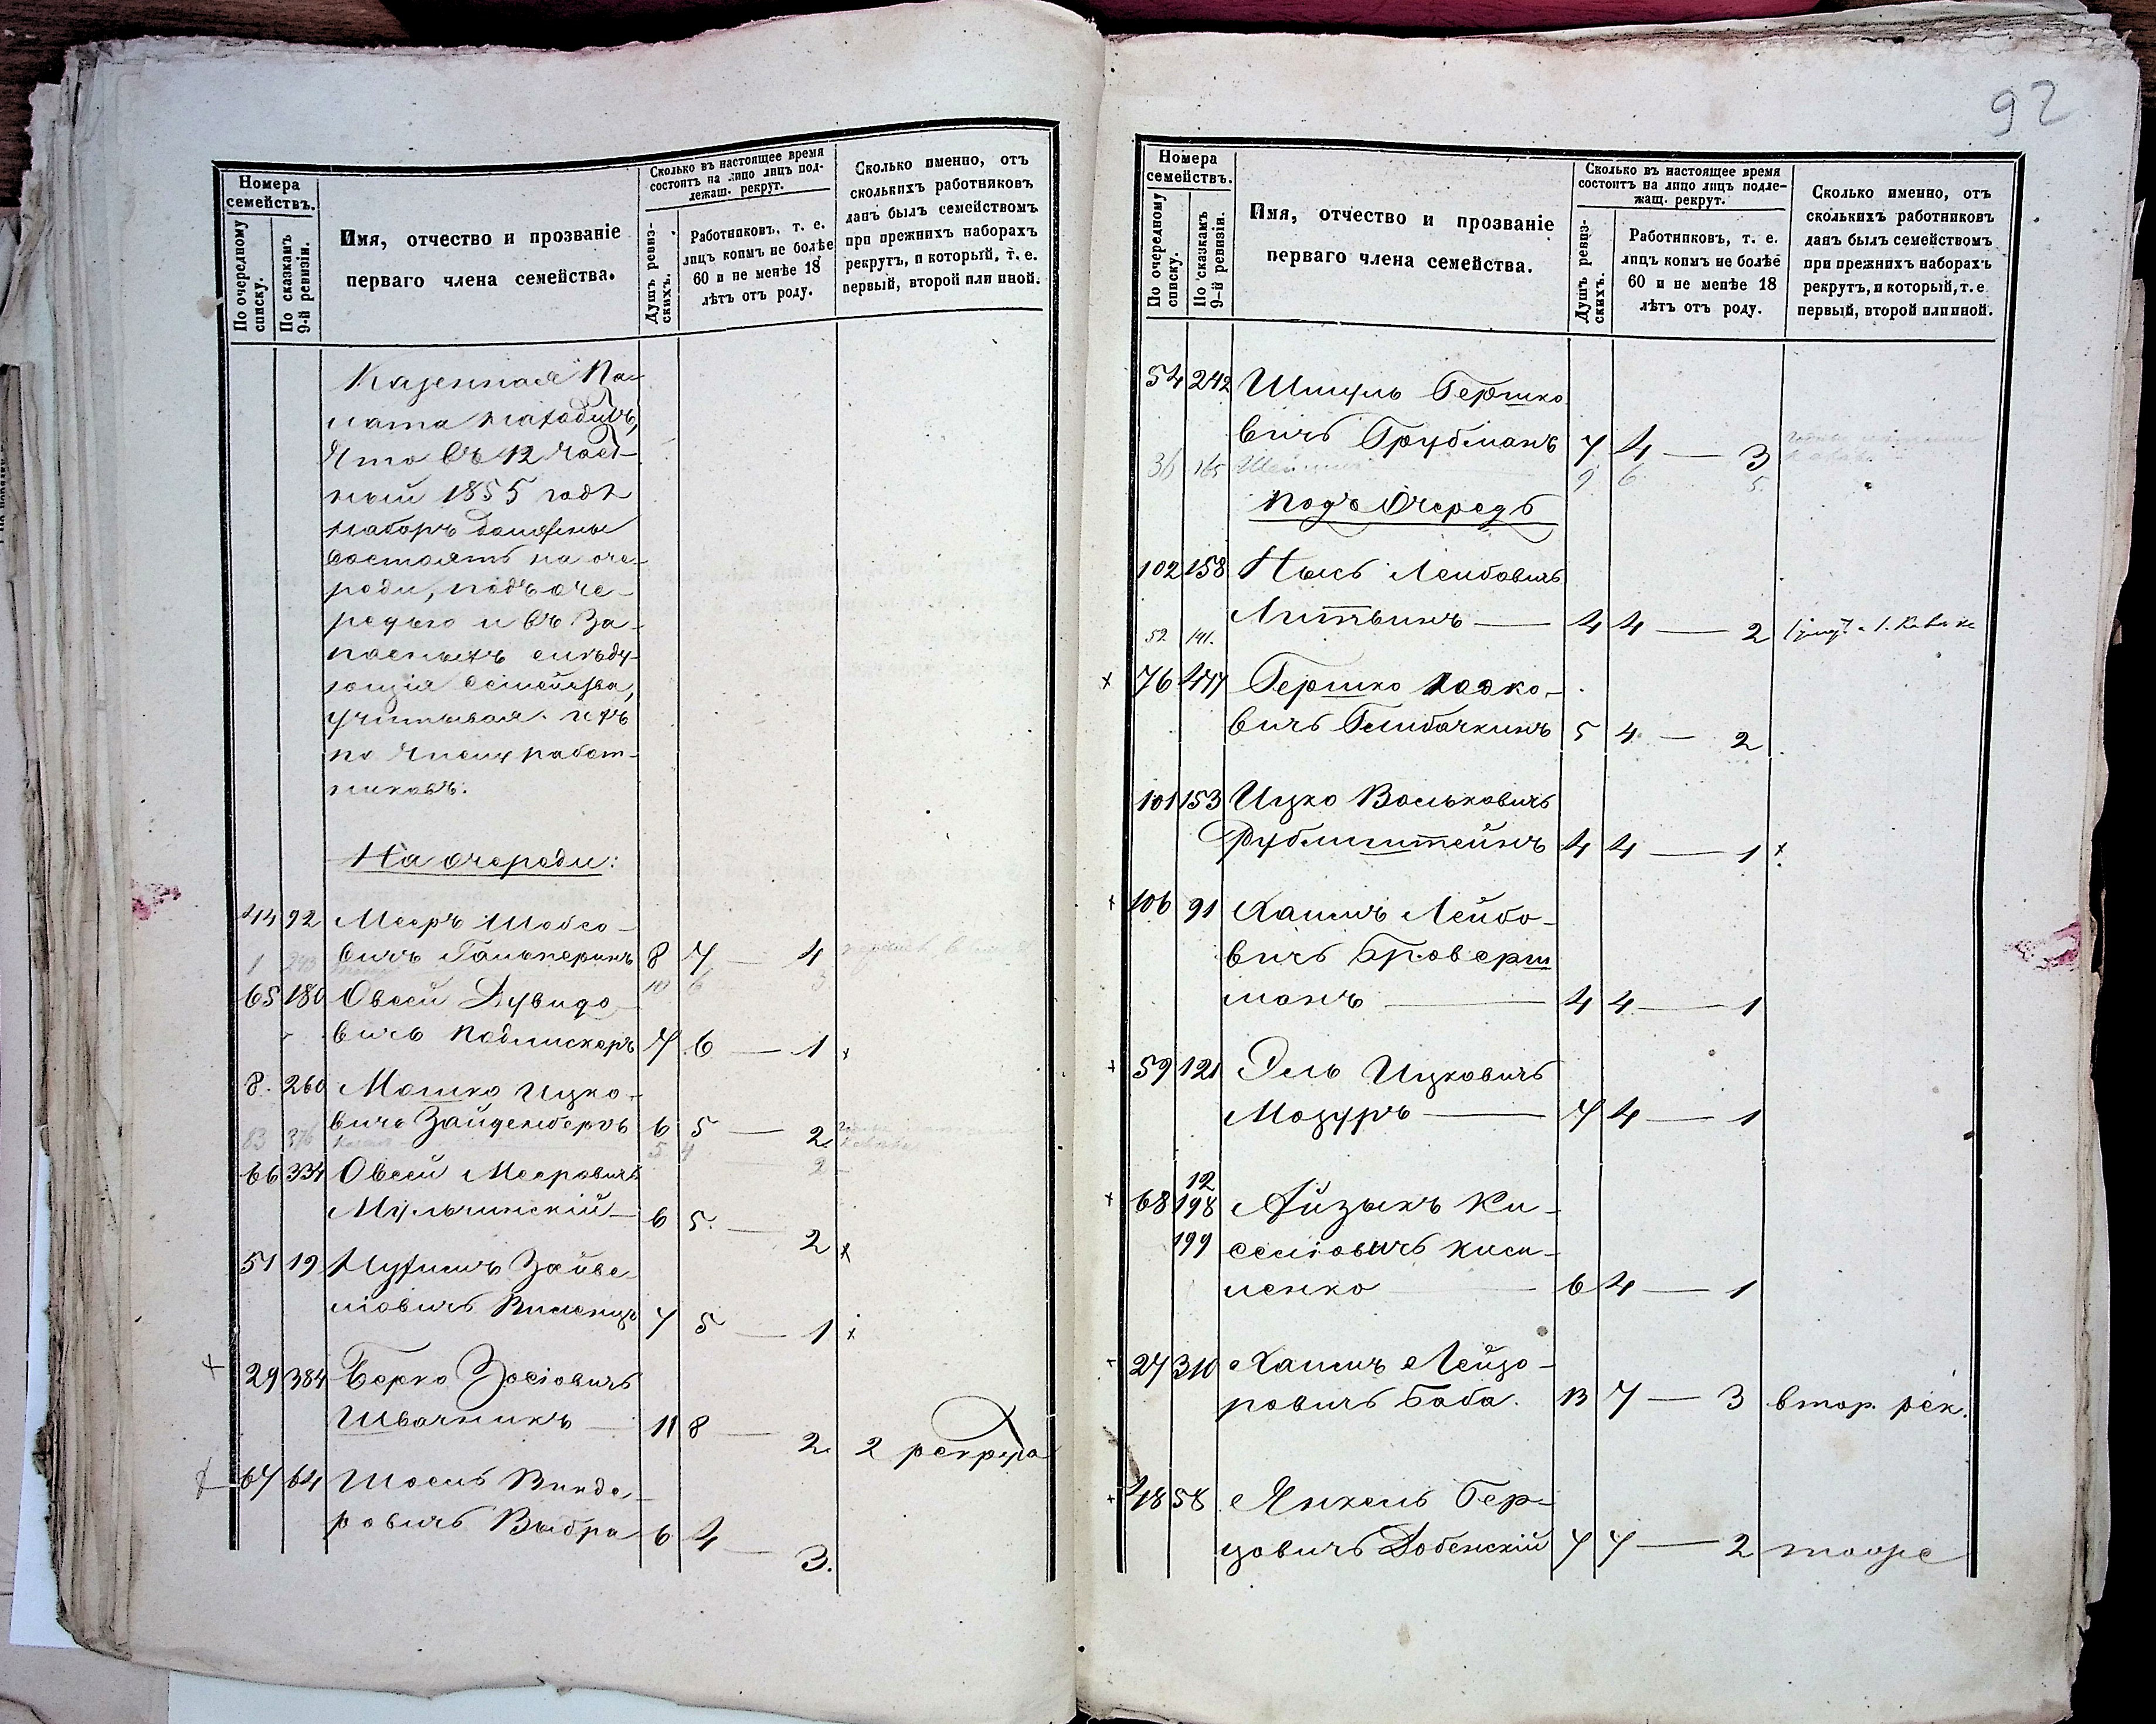 92
Номера
семействъ.
По очередному
списку.
По сказкамъ
9-й ревизіи.
Имя, отчество и прозваніе
перваго члена семейства.
Сколько въ настоящее время
состоитъ на лицо лицъ под-
лежащ. рекрут.
Душъ ревиз-
скихъ.
Работниковъ, т. е.
лицъ коимъ не болѣе
60 и не менѣе 18
лѣтъ отъ роду.
Сколько именно, отъ
сколькихъ работниковъ
данъ былъ семействомъ
при прежнихъ наборахъ
рекрутъ, и который, т. е.
первый, второй или иной.
Казенная Па-
лата находитъ,
что въ 12 част-
ный 1855 года
наборъ должны
состоять на оче-
реди, подъ оче-
редью и въ За-
пасныхъ слѣду-
ющія семейства,
учитывая ихъ
по числу работ-
никовъ:
На очереди:
44 92 Мееръ Шабсо-
вичъ Гальперинъ 8 7 — 4
65 180 Овсей Дувидо-
вичъ Подлискеръ 7 6 — 1 x
8. 260 Мошко Ицко-
вичъ Зайденберъ 6 5 — 2
66 334 Овсей Мееровичъ
Мульчинскій — 6 5. — 2 x
51 19 Нухимъ Зайве-
ліовичъ Виленцъ 7 5 — 1 x
x 29 384 Берко Зосіовичъ
Швачникъ — 11 8 — 2 2 рекрута
67 64 Шоель
ровичъ Выдра 6 4 — 3.
Номера
семействъ.
По очередному
списку.
По сказкамъ
9-й ревизіи.
Имя, отчество и прозваніе
перваго члена семейства.
Сколько въ настоящее время
состоитъ на лицо лицъ подле-
жащ. рекрут.
Душъ ревиз-
скихъ.
Работниковъ, т. е.
лицъ коимъ не болѣе
60 и не менѣе 18
лѣтъ отъ роду.
Сколько именно, отъ
сколькихъ работниковъ
данъ былъ семействомъ
при прежнихъ наборахъ
рекрутъ, и который, т. е
первый, второй или иной.
54 242 Шмуль Гершко
вичъ Грубманъ 7 4 — 3
36 165 9 6 5.
Подъ Очередь
102 158 Нысь Лейбовичъ
Литвинъ — 4 4 — 2
52 141.
x 76 477 Гершко
вичъ Голибачкинъ 5 4 — 2
101 153 Ицко Вольковичъ
Рублиштейнъ 4 4 — 1 x
106 91 Хаимъ Лейбо-
вичъ Броверш
манъ — 4 4 — 1
59 121 Эль Ицковичъ
Мазуръ — 7 4 — 1
12
x 68 198 Айзыкъ Ки-
199 селіовичъ Киси-
ленко — 6 4 — 1
27 310 Хаимъ Лейзо-
ровичъ Баба. 13 7 — 3 втор. рек.
48 58 Янкель Гер-
цовичъ Добенскій 7 7 — 2 тоже